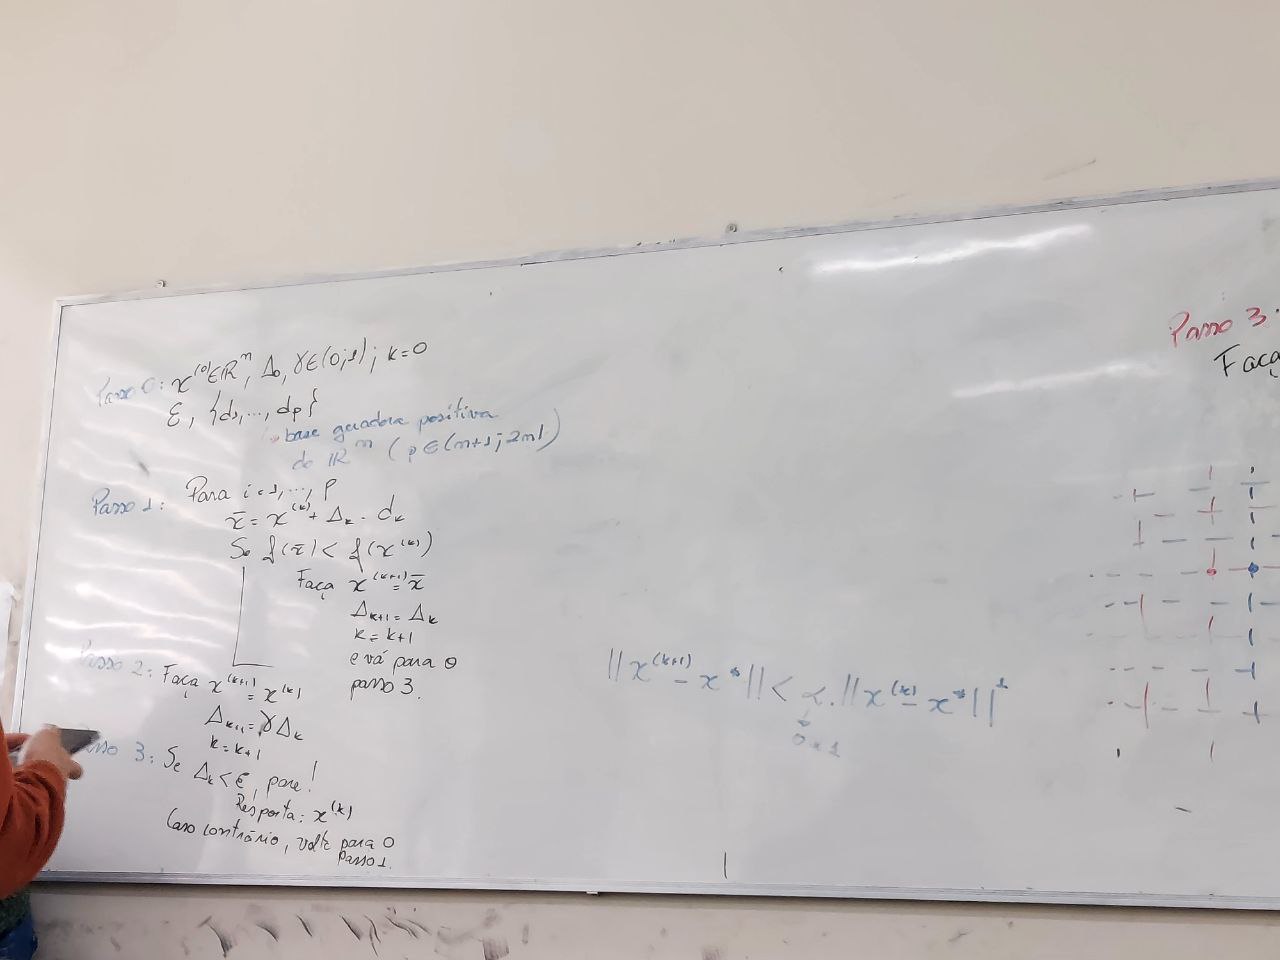 Passo 0: x^(0) ∈ ℝ^n, Δ0, γ ∈ (0;1); k=0
ε, {d1, ..., dp}
base geradora positiva
do ℝ^n (p ∈ (n+1; 2n))
Passo 1: Para i=1, ..., p
x̄ = x^(k) + Δk · dk
Se f(x̄) < f(x^(k))
Faça x^(k+1) = x̄
Δk+1 = Δk
k = k+1
e vá para o
passo 3.
Passo 2: Faça x^(k+1) = x^(k)
Δk+1 = γΔk
k = k+1
Passo 3: Se Δk < ε, pare!
Resposta: x^(k)
Caso contrário, volte para o
Passo 1.
||x^(k+1) - x*|| < α.||x^(k) - x*||^1
0 e 1
Passo 3:
Faça